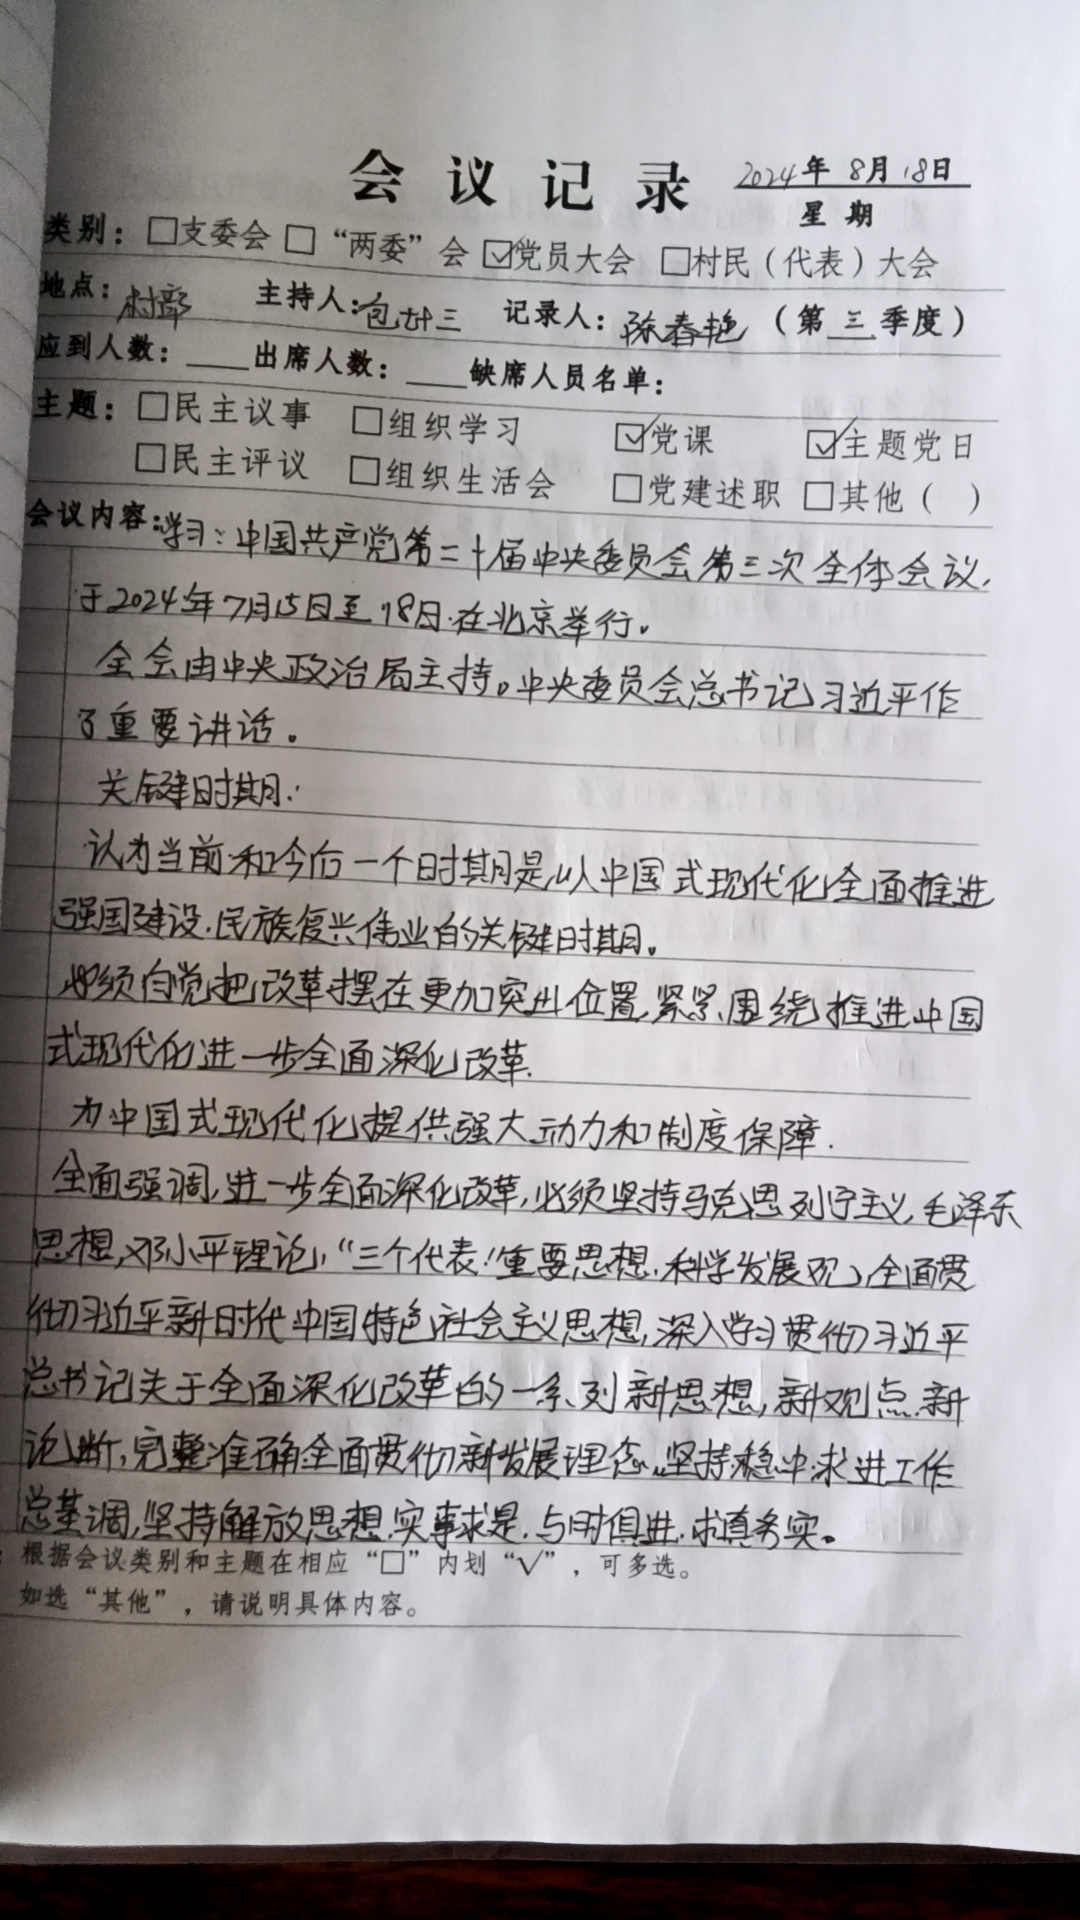 会议记录 2024年8月18日
星期
类别：□支委会 □“两委”会 ☑党员大会 □村民（代表）大会
地点：村部 主持人：包廿三 记录人：陈春艳（第三季度）
应到人数：____出席人数：____缺席人员名单：
主题：□民主议事 □组织学习 ☑党课 ☑主题党日
□民主评议 □组织生活会 □党建述职 □其他（ ）
会议内容：学习：中国共产党第二十届中央委员会第三次全体会议，
于2024年7月15日至18日.在北京举行。
全会由中央政治局主持。中央委员会总书记习近平作
了重要讲话。
关键时期：
认为当前和今后一个时期是以中国式现代化全面推进
强国建设.民族复兴伟业的关键时期。
必须自觉把改革摆在更加突出位置，紧紧围绕推进中国
式现代化进一步全面深化改革.
为中国式现代化提供强大动力和制度保障.
全面强调，进一步全面深化改革，必须坚持马克思列宁主义，毛泽东
思想，邓小平理论，“三个代表”重要思想，科学发展观，全面贯
彻习近平新时代中国特色社会主义思想，深入学习贯彻习近平
总书记关于全面深化改革的一系列新思想，新观点.新
论断，完整准确全面贯彻新发展理念，坚持稳中求进工作
总基调，坚持解放思想.实事求是.与时俱进.求真务实。
：根据会议类别和主题在相应“□”内划“√”，可多选。
如选“其他”，请说明具体内容。